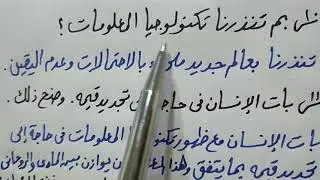 س/ بم تنذرنا تكنولوجيا المعلومات؟
تنذرنا بعالم جديد ملىء بالاحتمالات وعدم اليقين.
س/ بات الإنسان في حاجة إلى تجديد قيمه. وضح ذلك.
بات الإنسان مع ظهور تكنولوجيا المعلومات في حاجة إلى
تجديد قيمه بما يتفق وهذا يوازن بين المادى والروحانى